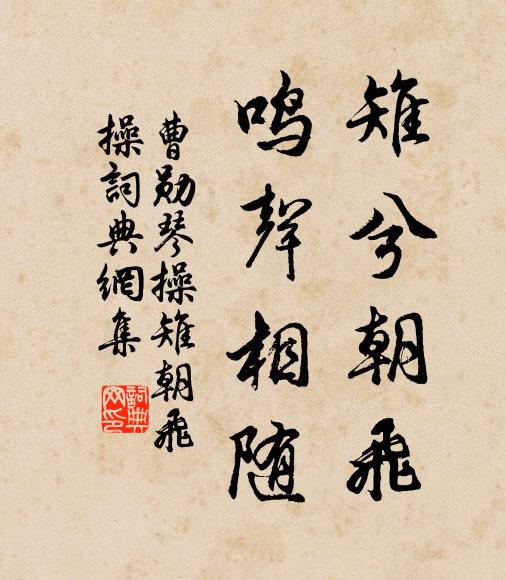 雉兮朝飛
鳴聲相随
曹勛琴操雉朝飛
操詞典網集
詞典网印